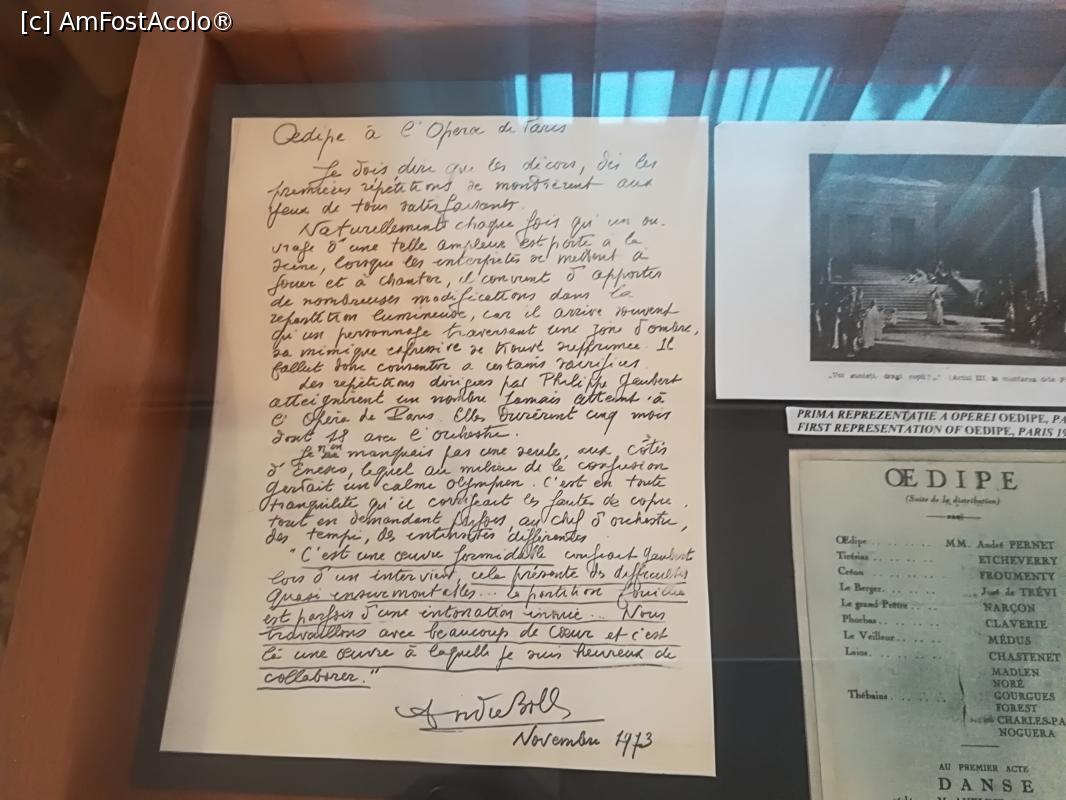 [c] AmFostAcolo®
Oedipe à l'Opera de Paris
Je dois dire que les décors, dès les
premières répétitions se montrèrent aux
yeux de tous satisfaisants.
Naturellement chaque fois qu'un ou-
vrage d'une telle ampleur est porté à la
scène, lorsque les interprètes se mettent à
jouer et à chanter, il convient d'apporter
de nombreuses modifications dans la
répartition lumineuse, car il arrive souvent
qu'un personnage traversant une zone d'ombre,
sa mimique expressive se trouve supprimée. Il
fallut donc consentir a certains sacrifices.
Les répétitions dirigées par Philippe Gaubert
atteignirent un nombre jamais atteint à
l'Opéra de Paris. Elles durèrent cinq mois
dont 18 avec l'orchestre.
Je n'en manquais pas une seule, aux côtés
d'Enesco, lequel au milieu de la confusion
gardait un calme olympien. C'est en toute
tranquilité qu'il corrigeait les fautes de copie,
tout en demandant parfois, au chef d'orchestre,
des tempi, des intensités différentes.
"C'est une œuvre formidable confiait Gaubert
lors d'un interview, cela présente des difficultés
quasi insurmontables... la partition
est parfois d'une intonation inouïe... Nous
travaillons avec beaucoup de cœur et c'est
là une œuvre à laquelle je suis heureux de
collaborer."
André Boll
Novembre 1973
"Voi sunteți, dragi copii?.." (Actul III la
PRIMA REPREZENTAȚIE A OPEREI OEDIPE, PA
FIRST REPRESENTATION OF OEDIPE, PARIS 19
ŒDIPE
(Suite de la distribution)
Œdipe . . . . . . . . MM. André PERNET
Tirésias . . . . . . . . ETCHEVERRY
Créon . . . . . . . . FROUMENTY
Le Berger . . . . . . . . José de TRÉVI
Le grand Prêtre . . . . . . . . NARÇON
Phoebas . . . . . . . . CLAVERIE
Le Veilleur . . . . . . . . MÉDUS
Laios . . . . . . . . CHASTENET
Thébains . . . . . . . . MADLEN
NORÉ
GOURGUES
FOREST
CHARLES-PA
NOGUERA
AU PREMIER ACTE
DANSE